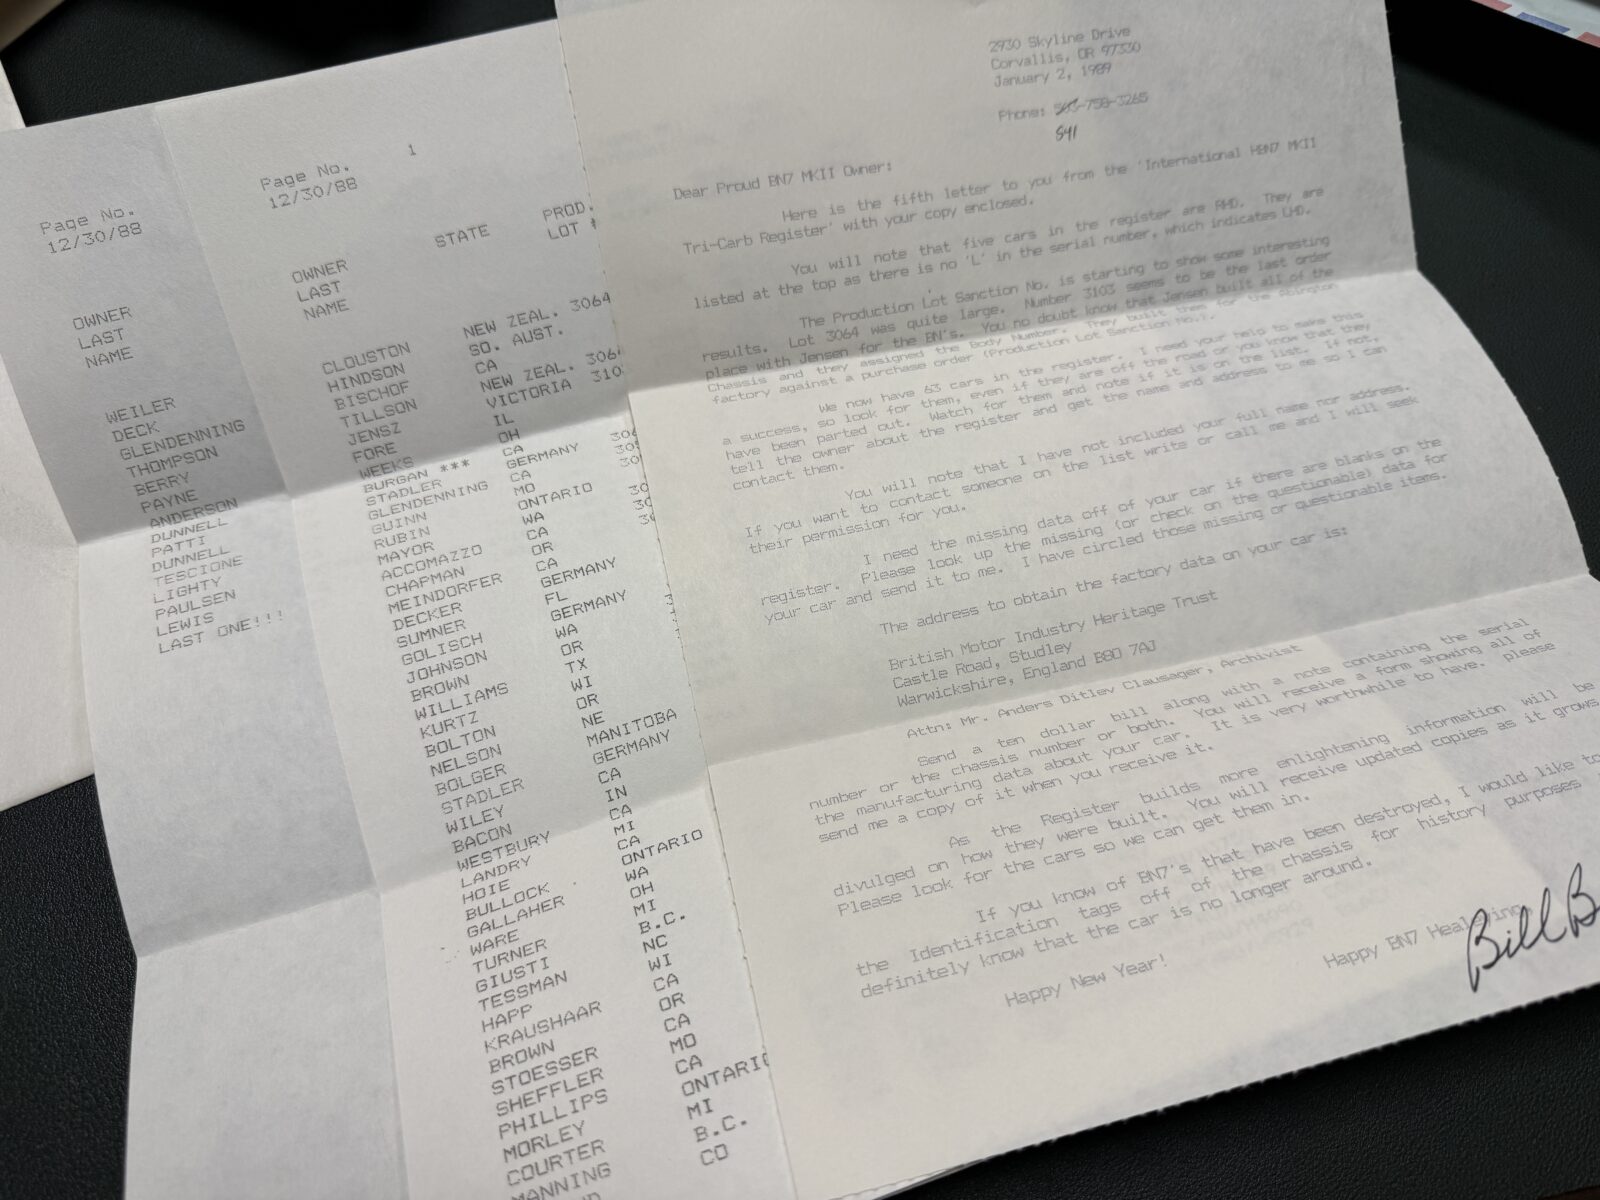 Page No.
12/30/88
OWNER
LAST
NAME
WEILER
DECK
GLENDENNING
THOMPSON
BERRY
PAYNE
ANDERSON
DUNNELL
PATTI
DUNNELL
TESCIONE
LIGHTY
PAULSEN
LEWIS
LAST ONE!!!
Page No. 1
12/30/88
OWNER STATE PROD.
LAST LOT #
NAME
CLOUSTON NEW ZEAL. 3064
HINDSON SO. AUST.
BISCHOF CA
TILLSON NEW ZEAL. 306
JENSZ VICTORIA 310
FORE IL
WEEKS OH
BURGAN *** CA
STADLER GERMANY
GLENDENNING CA
GUINN MO
RUBIN ONTARIO
MAYOR WA
ACCOMAZZO CA
CHAPMAN OR
MEINDORFER CA
DECKER GERMANY
SUMNER FL
GOLISCH GERMANY
JOHNSON WA
BROWN OR
WILLIAMS TX
KURTZ WI
BOLTON OR
NELSON NE
BOLGER MANITOBA
STADLER GERMANY
WILEY CA
BACON IN
WESTBURY CA
LANDRY MI
HOIE CA
BULLOCK ONTARIO
GALLAHER WA
WARE OH
TURNER MI
GIUSTI B.C.
TESSMAN NC
HAPP WI
KRAUSHAAR CA
BROWN OR
STOESSER CA
SHEFFLER MO
PHILLIPS CA
MORLEY ONTARIO
COURTER MI
MANNING B.C.
CO
2930 Skyline Drive
Corvallis, OR 97330
January 2, 1989
Phone: 503-758-3265
541
Dear Proud BN7 MKII Owner:
Here is the fifth letter to you from the 'International HBN7 MKII
Tri-Carb Register' with your copy enclosed.
You will note that five cars in the register are RHD. They are
listed at the top as there is no 'L' in the serial number, which indicates LHD.
The Production Lot Sanction No. is starting to show some interesting
results. Lot 3064 was quite large. Number 3103 seems to be the last order
place with Jensen for the BN's. You no doubt know that Jensen built all of the
Chassis and they assigned the Body Number. They built them for the Abington
factory against a purchase order (Production Lot Sanction No.).
We now have 63 cars in the register. I need your help to make this
a success, so look for them, even if they are off the road or you know that they
have been parted out. Watch for them and note if it is on the list. If not,
tell the owner about the register and get the name and address to me so I can
contact them.
You will note that I have not included your full name nor address.
If you want to contact someone on the list write or call me and I will seek
their permission for you.
I need the missing data off of your car if there are blanks on the
register. Please look up the missing (or check on the questionable) data for
your car and send it to me. I have circled those missing or questionable items.
The address to obtain the factory data on your car is:
British Motor Industry Heritage Trust
Castle Road, Studley
Warwickshire, England B80 7AJ
Attn: Mr. Anders Ditlev Clausager, Archivist
Send a ten dollar bill along with a note containing the serial
number or the chassis number or both. You will receive a form showing all of
the manufacturing data about your car. It is very worthwhile to have. please
send me a copy of it when you receive it.
As the Register builds more enlightening information will be
divulged on how they were built. You will receive updated copies as it grows.
Please look for the cars so we can get them in.
If you know of BN7's that have been destroyed, I would like to
the Identification tags off of the chassis for history purposes
definitely know that the car is no longer around.
Happy New Year!
Happy BN7 Healeying,
Bill B